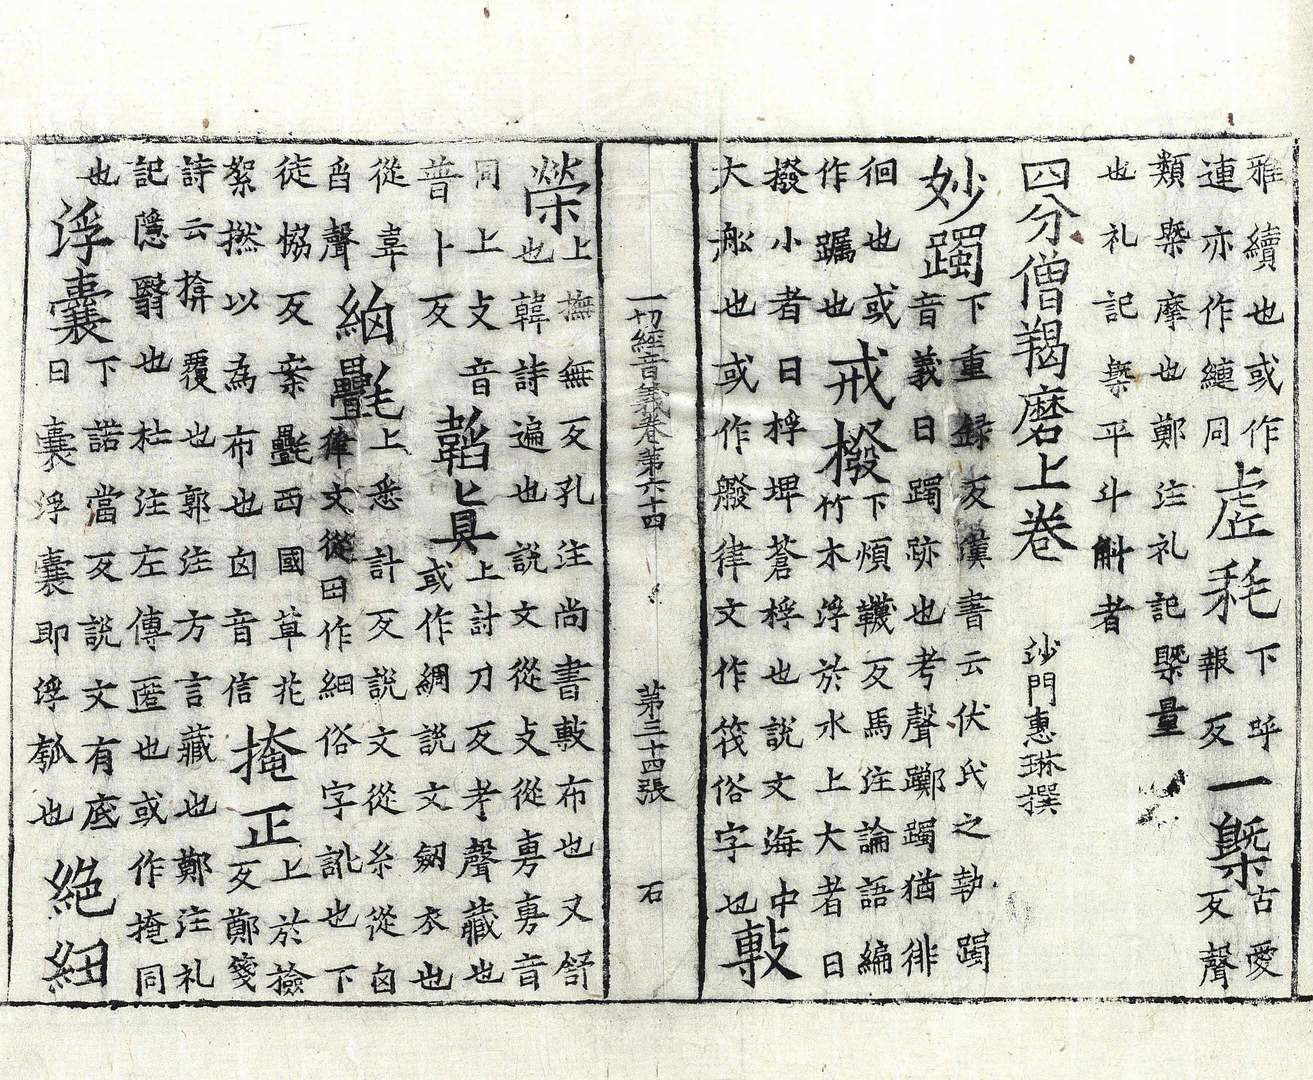 雅續也或作
連亦作縺同
虗秏
下呼
報反
一槩
古愛
反聲
類槩摩也鄭注礼記槩量
也礼記槩平斗斛者
四分僧羯磨上卷 沙門惠琳撰
妙躅
下重録反漢書云伏氏之執躅
音義曰躅跡也考聲躑躅猶徘
徊也或
作躅也
戒橃
下煩韈反馬注論語編
竹木浮於水上大者曰
橃小者曰桴埤蒼桴也說文海中
大舩也或作𦪑律文作筏俗字也
敷
一切經音義卷第六十四 第三十四張 石
榮
上撫無反孔注尚書敷布也又舒
也韓詩遍也說文從攴從尃尃音
同上攴音
普卜反
韜眞
上討刀反考聲藏也
或作綢說文劒衣也
從韋
舀聲
絈㲲
上悉計反說文從糸從囟
律文從田作細俗字訛也下
徒協反案㲲西國草花
絮撚以為布也囟音信
掩正
上於撿
反鄭箋
詩云揜覆也郭注方言藏也鄭注礼
記隱翳也杜注左傳匿也或作掩同
也
浮囊
下諾當反說文有底
曰囊浮囊即浮瓠也
絶紐